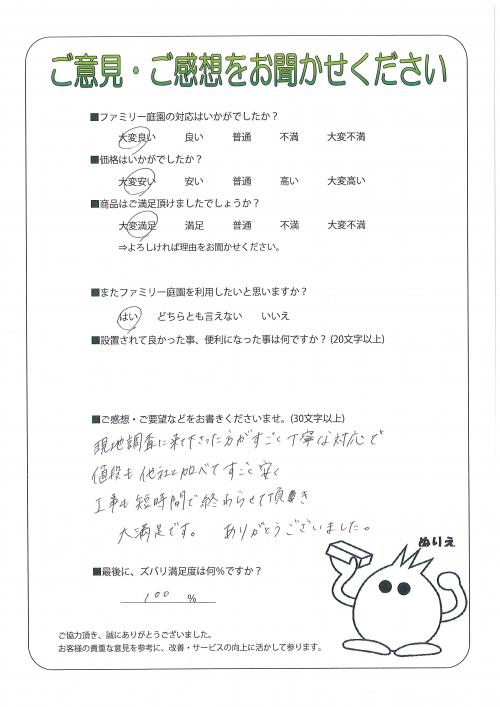 ご意見・ご感想をお聞かせください
■ファミリー庭園の対応はいかがでしたか？
大変良い　良い　普通　不満　大変不満
■価格はいかがでしたか？
大変安い　安い　普通　高い　大変高い
■商品はご満足頂けましたでしょうか？
大変満足　満足　普通　不満　大変不満
⇒よろしければ理由をお聞かせください。
■またファミリー庭園を利用したいと思いますか？
はい　どちらとも言えない　いいえ
■設置されて良かった事、便利になった事は何ですか？(20文字以上)
■ご感想・ご要望などをお書きくださいませ。(30文字以上)
現地調査に来て下さった方がすごく丁寧な対応で
値段も他社と比べてすごく安く
工事も短時間で終わらせて頂き
大満足です。　ありがとうございました。
ぬりえ
■最後に、ズバリ満足度は何％ですか？
100 ％
ご協力頂き、誠にありがとうございました。
お客様の貴重な意見を参考に、改善・サービスの向上に活かして参ります。